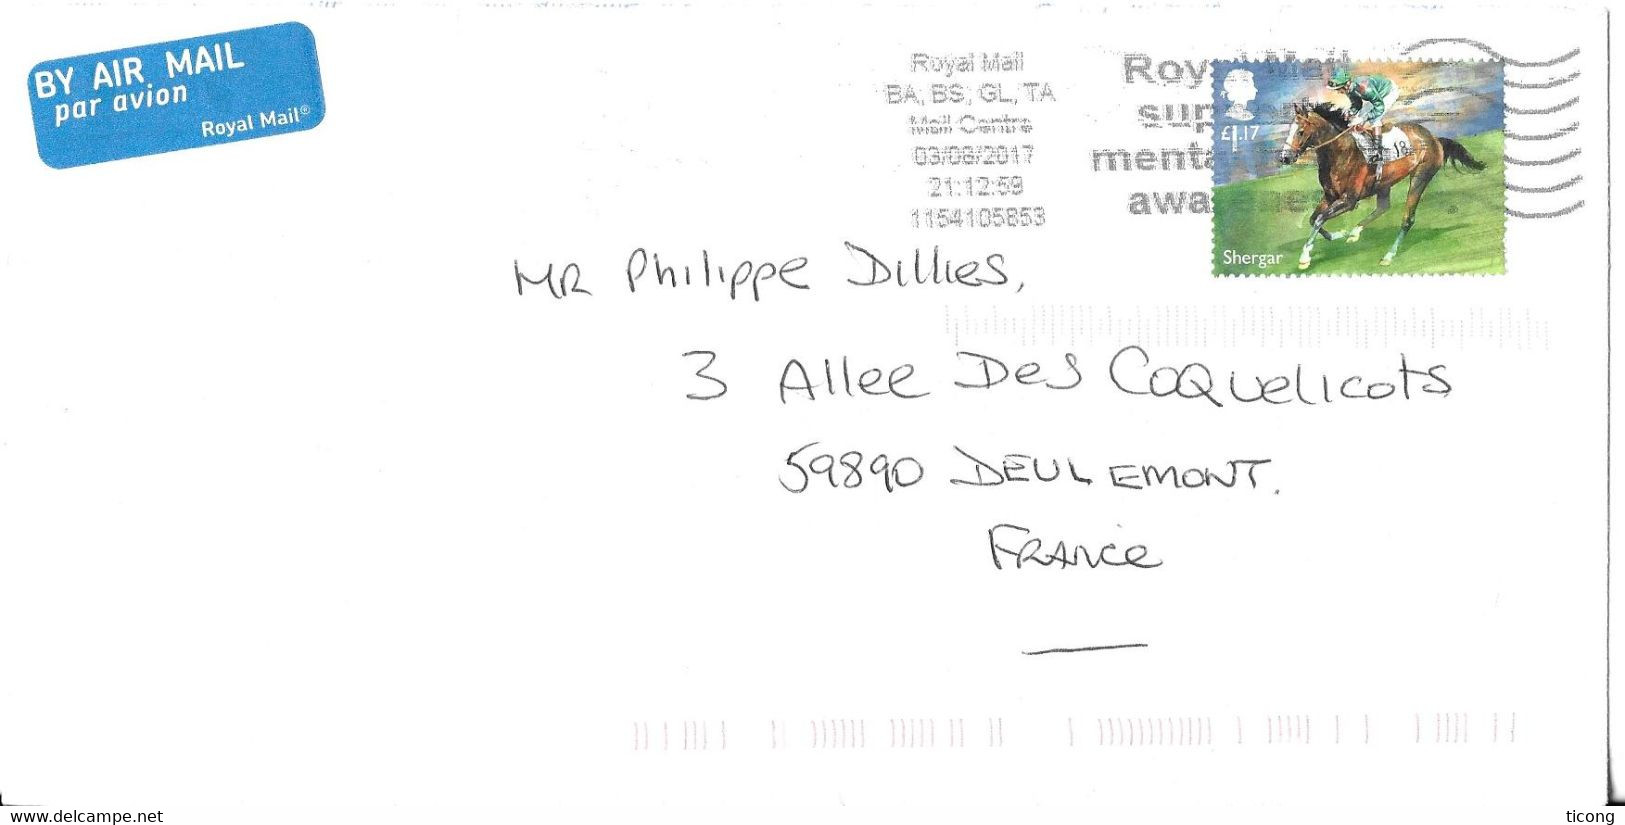 BY AIR MAIL
par avion
Royal Mail®
Royal Mail
BA, BS, GL, TA
Mail Centre
03/08/2017
21:12:59
1154105853
Royal Mail
support
mental
awareness
£1.17
18
Shergar
MR Philippe Dillies,
3 Allee Des Coquelicots
59890 DEULEMONT.
France
www.delcampe.net
ticong